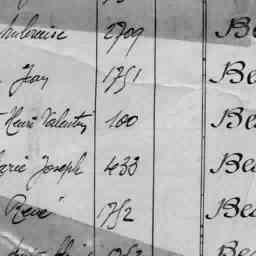 2709 Be
Jean 1751 Bea
Henri Valentin 160 Bea
Marie Joseph 433 Bea
René 1752 Bea